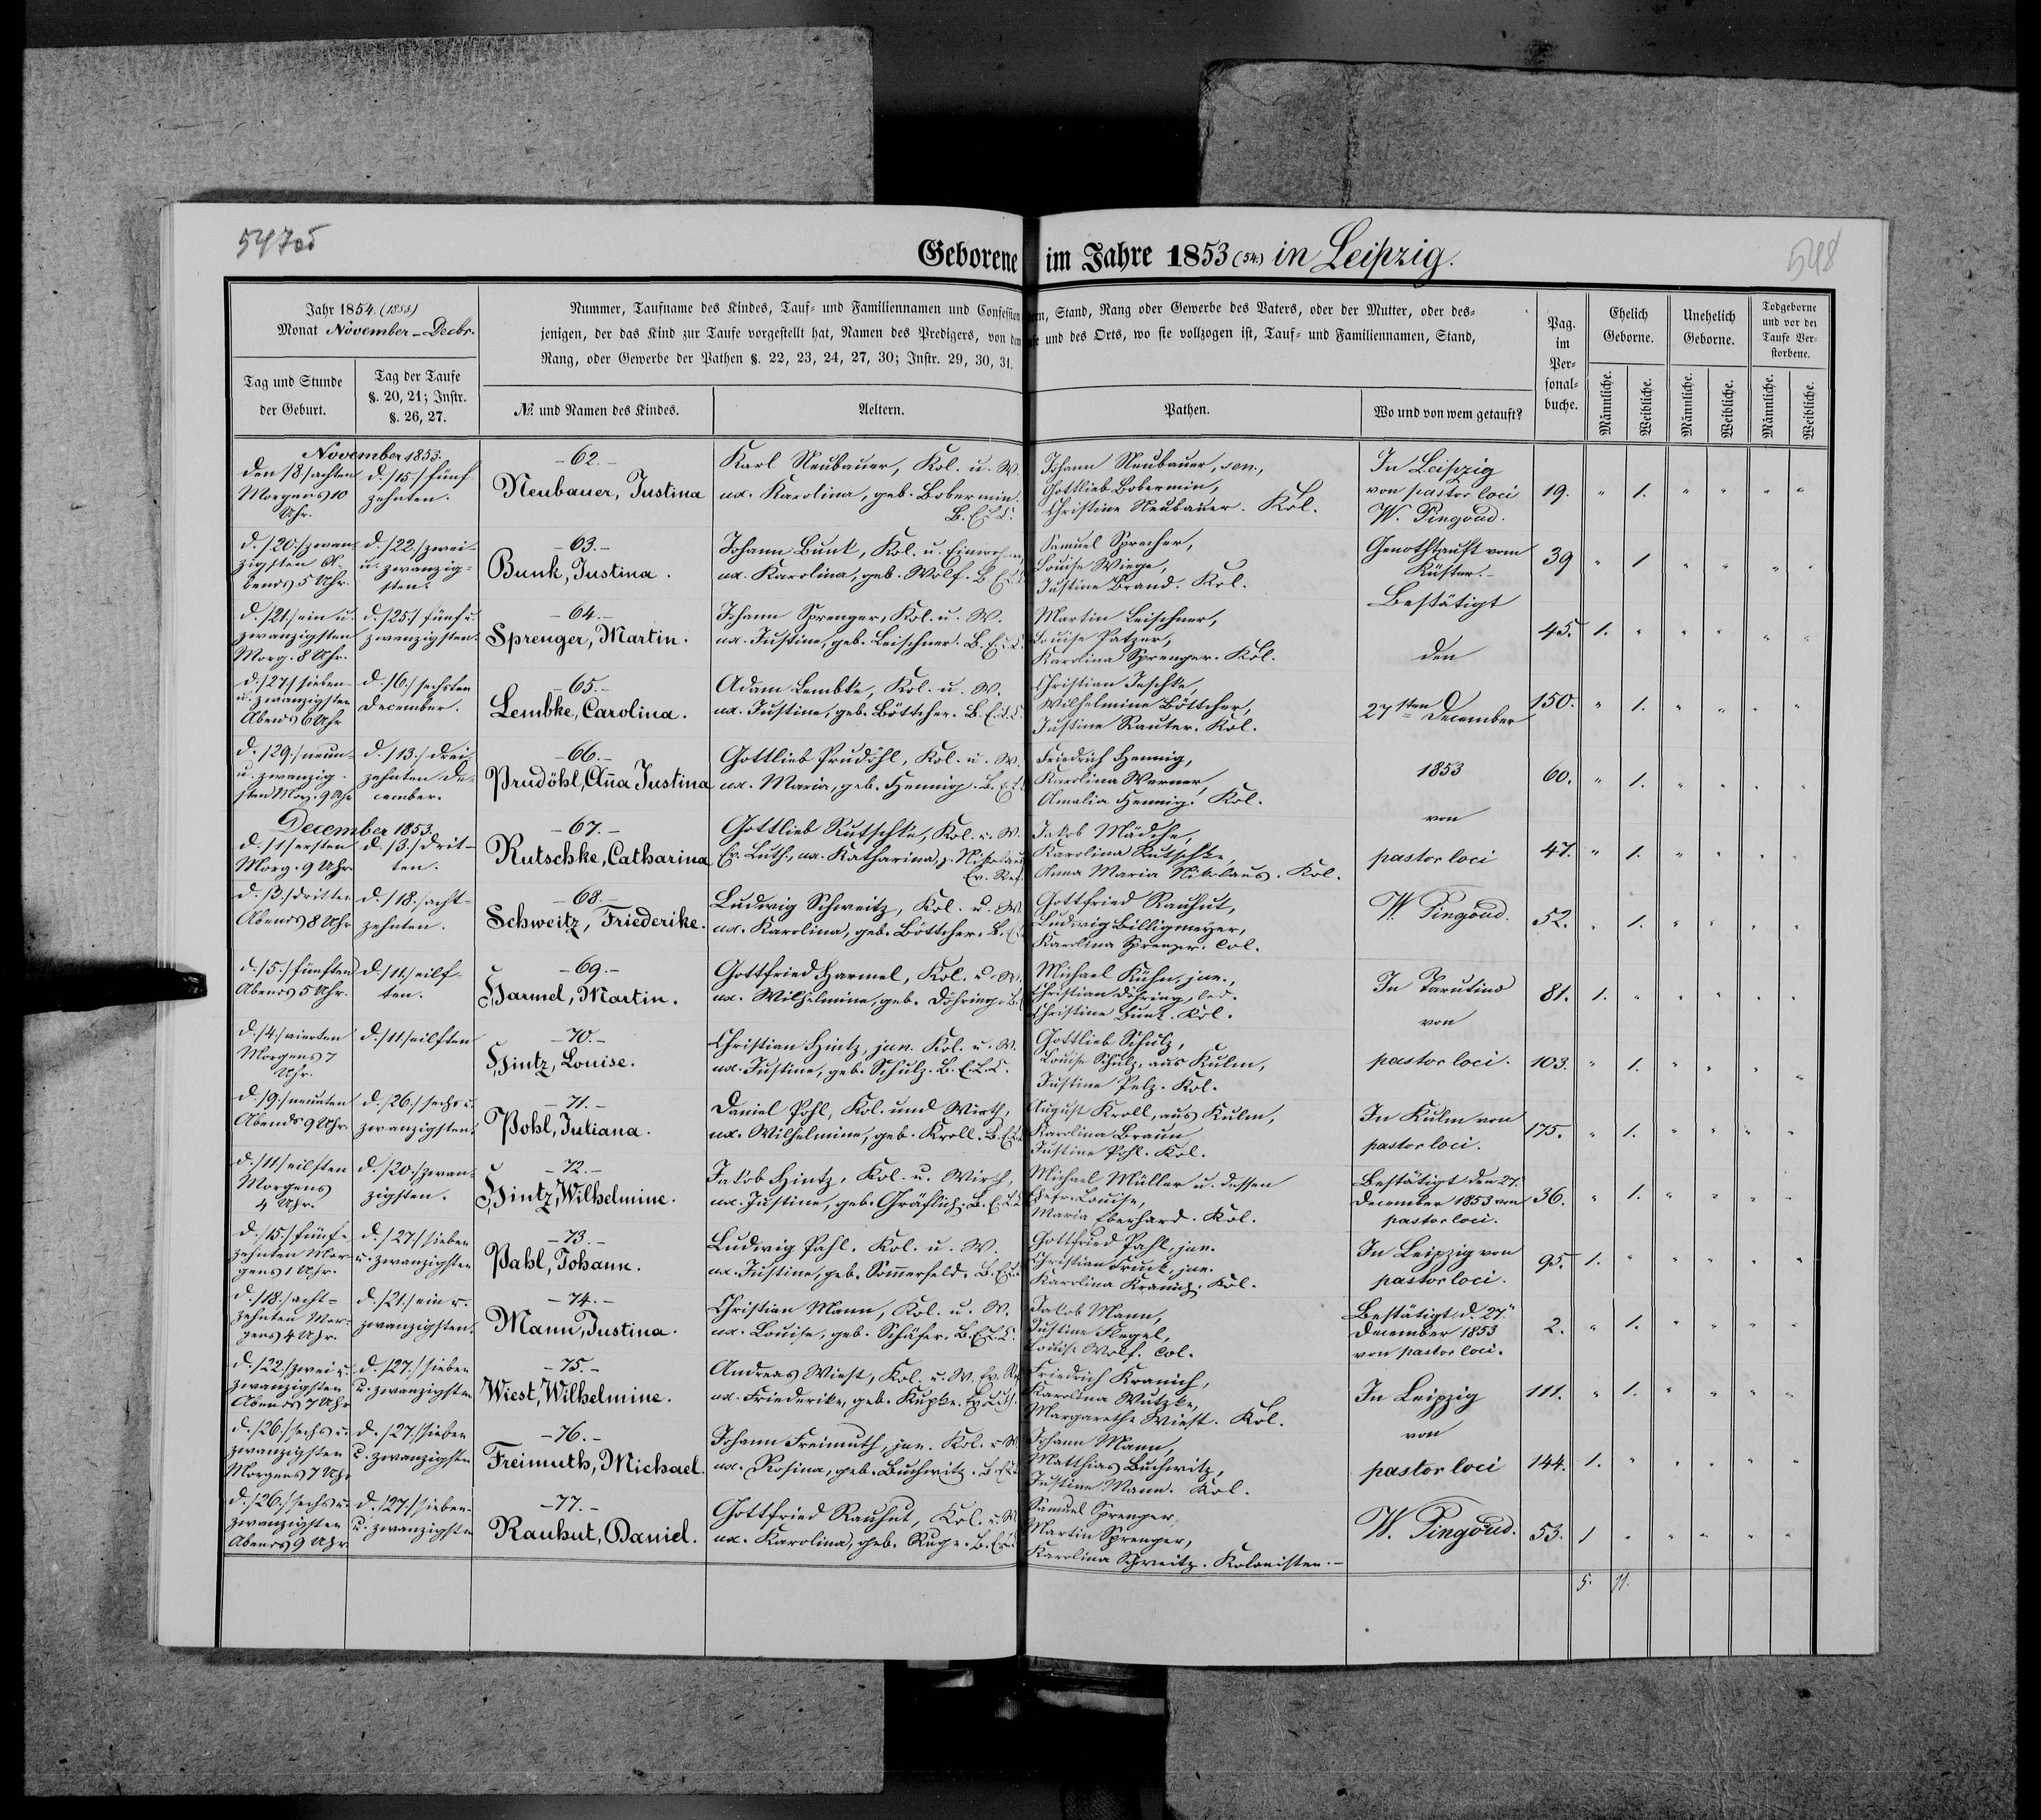 547 об
548
Geborene im Jahre 1853 (54.) in Leipzig.
Jahr 1854. (1853)
Monat November-Decbr.
Nummer, Taufname des Kindes, Tauf- und Familiennamen und Confession
ern, Stand, Rang oder Gewerbe des Vaters, oder der Mutter, oder des-
jenigen, der das Kind zur Taufe vorgestellt hat, Namen des Predigers, von dem
und des Orts, wo sie vollzogen ist, Tauf- und Familiennamen, Stand,
Rang, oder Gewerbe der Pathen §. 22, 23, 24, 27, 30; Instr. 29, 30, 31.
Tag und Stunde
der Geburt.
Tag der Taufe
§. 20, 21; Instr.
§. 26, 27.
№ und Namen des Kindes.
Aeltern.
Pathen.
Wo und von wem getauft?
Pag.
im
Per-
sonal-
buche.
Ehelich
Geborne.
Unehelich
Geborne.
Todgeborne
und vor der
Taufe Ver-
storbene.
Männliche.
Weibliche.
Männliche.
Weibliche.
Männliche.
Weibliche.
November 1853.
den /8./ achten
Morgens 10
Uhr.
d. /15./ fünf
zehnten.
-62.-
Neubauer, Justina
Karl Neubauer, Kol. u. W.
ux. Karolina, geb. Bobermin.
B. E. L.
Johann Neubauer, sen.,
Gottlieb Bobermin,
Christine Neubauer. Kol.
In Leipzig
von pastor loci
W. Pingoud.
19. " 1. " " " "
d. /20./ zwan-
zigsten A-
bends 5 Uhr.
d. /22./ zwei-
u. zwanzig-
sten.
-63.-
Bunk, Justina.
Johann Bunk, Kol. u. Einwohner,
ux. Karolina, geb. Wolf. B. E. L.
Samuel Sprecher,
Louise Wiege,
Justine Brand. Kol.
Genothtauft vom
Küster.-
39 " 1 " " " "
d. /21./ ein u.
zwanzigsten
Morg. 8 Uhr.
d. /25./ fünf u.
zwanzigsten.
-64.-
Sprenger, Martin.
Johann Sprenger, Kol. u. W.
ux. Justine, geb. Leischner. B. E. L.
Martin Leischner,
Louise Patzer,
Karolina Sprenger. Kol.
Bestätigt
den
45. 1. " " " " "
d. /27./ sieben
u. zwanzigsten
Abends 6 Uhr
d. /6./ sechsten
December.
-65.-
Lembke, Carolina.
Adam Lembke, Kol. u. W.
ux. Justine, geb. Böttcher. B. E. L.
Christian Jeschke,
Wilhelmine Böttcher,
Justine Rauter. Kol.
27sten December
150. " 1. " " " "
d. /29./ neun-
u. zwanzig-
sten Morg. 9 Uhr
d. /13./ drei
zehnten De-
cember.
-66.-
Prudöhl, Aña Justina
Gottlieb Prudöhl, Kol. u. W.
ux. Maria, geb. Hennig. B. E. L.
Friedrich Hennig,
Karolina Werner,
Amalia Hennig. Kol.
1853
60. " 1. " " " "
December 1853.
d. /1./ ersten
Morg. 9 Uhr.
d. /3./ drit-
ten.
-67.-
Rutschke, Catharina
Gottlieb Rutschke, Kol. u. W.
Ev. Luth., ux. Katharina, g. Nikolaus
Ev. Ref.
Jakob Mädche,
Karolina Rutschke,
Anna Maria Nikolaus. Kol.
von
pastor loci
47. " 1. " " " "
d. /3./ dritten
Abends 8 Uhr
d. /18./ acht-
zehnten.
-68.-
Schweitz, Friederike.
Ludwig Schweitz, Kol. u. W.
ux. Karolina, geb. Böttcher. B. E.
Gottfried Rauhut,
Ludwig Billigmeyer,
Karolina Sprenger. Col.
W. Pingoud.
52. " 1. " " " "
d. /5./ fünften
Abends 5 Uhr.
d. /11./ eilf-
ten.
-69.-
Harmel, Martin.
Gottfried Harmel, Kol. u. W.
ux. Wilhelmine, geb. Döhring. B.
Michael Kühn, jun.,
Christian Döhring, led.
Christine Bunk. Kol.
In Tarutino
81. 1. " " " " "
d. /4./ vierten
Morgens 7
Uhr.
d. /11./ eilften
-70.-
Hintz, Louise.
Christian Hintz, jun. Kol. u. W.
ux. Justine, geb. Schulz. B. E. L.
Gottlieb Schulz,
Louise Schulz, aus Kulm,
Justine Pelz. Kol.
von
pastor loci.
103. " 1. " " " "
d. /9./ neunten
Abends 9 Uhr.
d. /26./ sechs u.
zwanzigsten.
-71.-
Pohl, Juliana.
Daniel Pohl, Kol. und Wirth,
ux. Wilhelmine, geb. Kroll. B. E. L.
August Kroll, aus Kulm,
Karolina Braun
Justine Pohl. Kol.
In Kulm von
pastor loci.
175. " 1. " " " "
d. /11./ eilften
Morgens
4 Uhr.
d. /20./ zwan-
zigsten.
-72.-
Hintz, Wilhelmine.
Jakob Hintz, Kol. u. Wirth,
ux. Justine, geb. Gräflich. B. E. L.
Michael Müller u. dessen
Ehefr. Louise,
Maria Eberhard. Kol.
Bestätigt den 27.
December 1853 von
pastor loci.
36. " 1. " " " "
d. /15./ fünf-
zehnten Mor-
gens 1 Uhr.
d. /27./ sieben
u. zwanzigsten
-73.-
Pahl, Johann.
Ludwig Pahl, Kol. u. W.
ux. Justine, geb. Som̄erfeld. B. E. L.
Gottfried Pahl, jun.
Christian Bunk, jun.
Karolina Kranich. Kol.
In Leipzig von
pastor loci.
95. 1. " " " " "
d. /18./ acht-
zehnten Mor-
gens 4 Uhr.
d. /21./ ein u.
zwanzigsten.
-74.-
Mann, Justina.
Christian Mann, Kol. u. W.
ux. Louise, geb. Schäfer. B. E. L.
Jakob Mann,
Justine Flegel,
Louise Wolf. Col.
Bestätigt d. 27.
December 1853
von pastor loci.
2. " 1. " " " "
d. /22./ zwei u.
zwanzigsten
Abends 7 Uhr
d. /27./ sieben
u. zwanzigsten
-75.-
Wiest, Wilhelmine.
Andreas Wiest, Kol. u. W. Ev. Ref.
ux. Friederike, geb. Kupke. Ev. Luth.
Friedrich Kranich,
Karolina Wutzke,
Margarethe Wiest. Kol.
In Leipzig
111. " 1. " " " "
d. /26./ sechs u.
zwanzigsten
Morgens 7 Uhr
d. /27./ sieben
u. zwanzigsten
-76.-
Freimuth, Michael.
Johann Freimuth, jun. Kol. u. W.
ux. Rosina, geb. Buchwitz. B. E. L.
Johann Mann,
Matthias Buchwitz,
Justine Mann. Kol.
von
pastor loci
144. 1. " " " " "
d. /26./ sechs u.
zwanzigsten
Abends 9 Uhr
d. /27./ sieben-
u. zwanzigsten
-77.-
Rauhut, Daniel.
Gottfried Rauhut, Kol. u. W.
ux. Karolina, geb. Ruge. B. E. L.
Samuel Sprenger,
Martin Sprenger,
Karolina Schweitz. Kolonisten.-
W. Pingoud.
53. 1 " " " " "
5. 11.